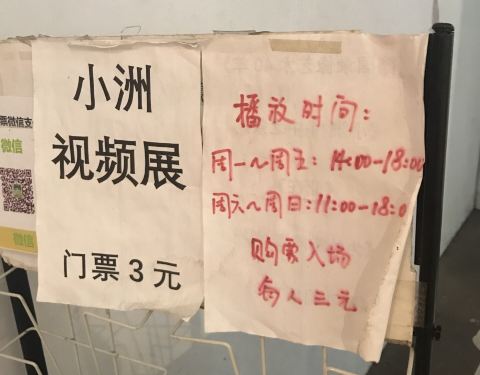 小洲
视频展
门票3元
播放时间：
周一～周五：14:00-18:00
周六～周日：11:00-18:0
购票入场
每人三元
票微信支
微信
微信